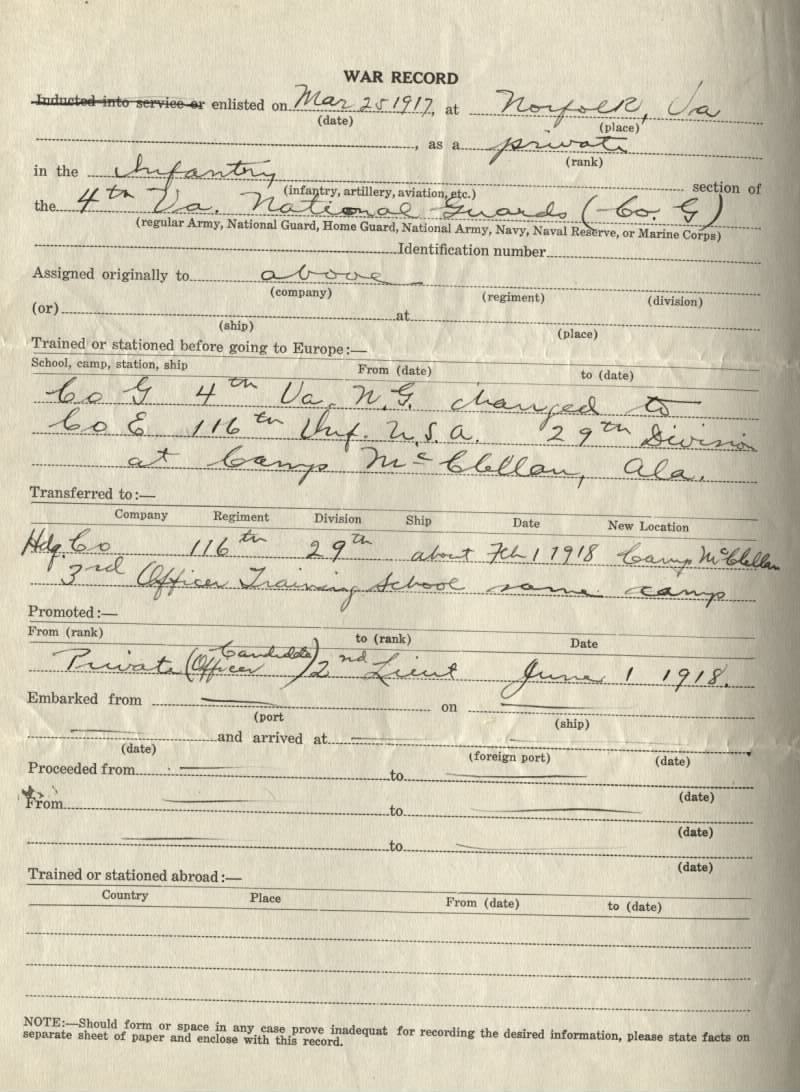 WAR RECORD
Inducted into service or enlisted on Mar 25 1917, at Norfolk, Va
(date) (place)
, as a private
(rank)
in the Infantry section of
(infantry, artillery, aviation, etc.)
the 4th Va. National Guards (Co. G)
(regular Army, National Guard, Home Guard, National Army, Navy, Naval Reserve, or Marine Corps)
Identification number
Assigned originally to above
(company) (regiment) (division)
(or) at
(ship) (place)
Trained or stationed before going to Europe:—
School, camp, station, ship From (date) to (date)
Co G 4th Va. N.G. changed to
Co E 116th Inf. U.S.A. 29th Division
at Camp McClellan, Ala.
Transferred to:—
Company Regiment Division Ship Date New Location
Hdq. Co 116th 29th about Feb 1 1918 Camp McClellan
3rd Officer Training School same camp
Promoted:—
From (rank) to (rank) Date
Private (Officer Candidate) 2nd Lieut June 1 1918.
Embarked from — on —
(port (ship)
— and arrived at — —
(date) (foreign port) (date)
Proceeded from — to —
(date)
From — to —
(date)
— to —
(date)
Trained or stationed abroad:—
Country Place From (date) to (date)
NOTE:—Should form or space in any case prove inadequat for recording the desired information, please state facts on
separate sheet of paper and enclose with this record.